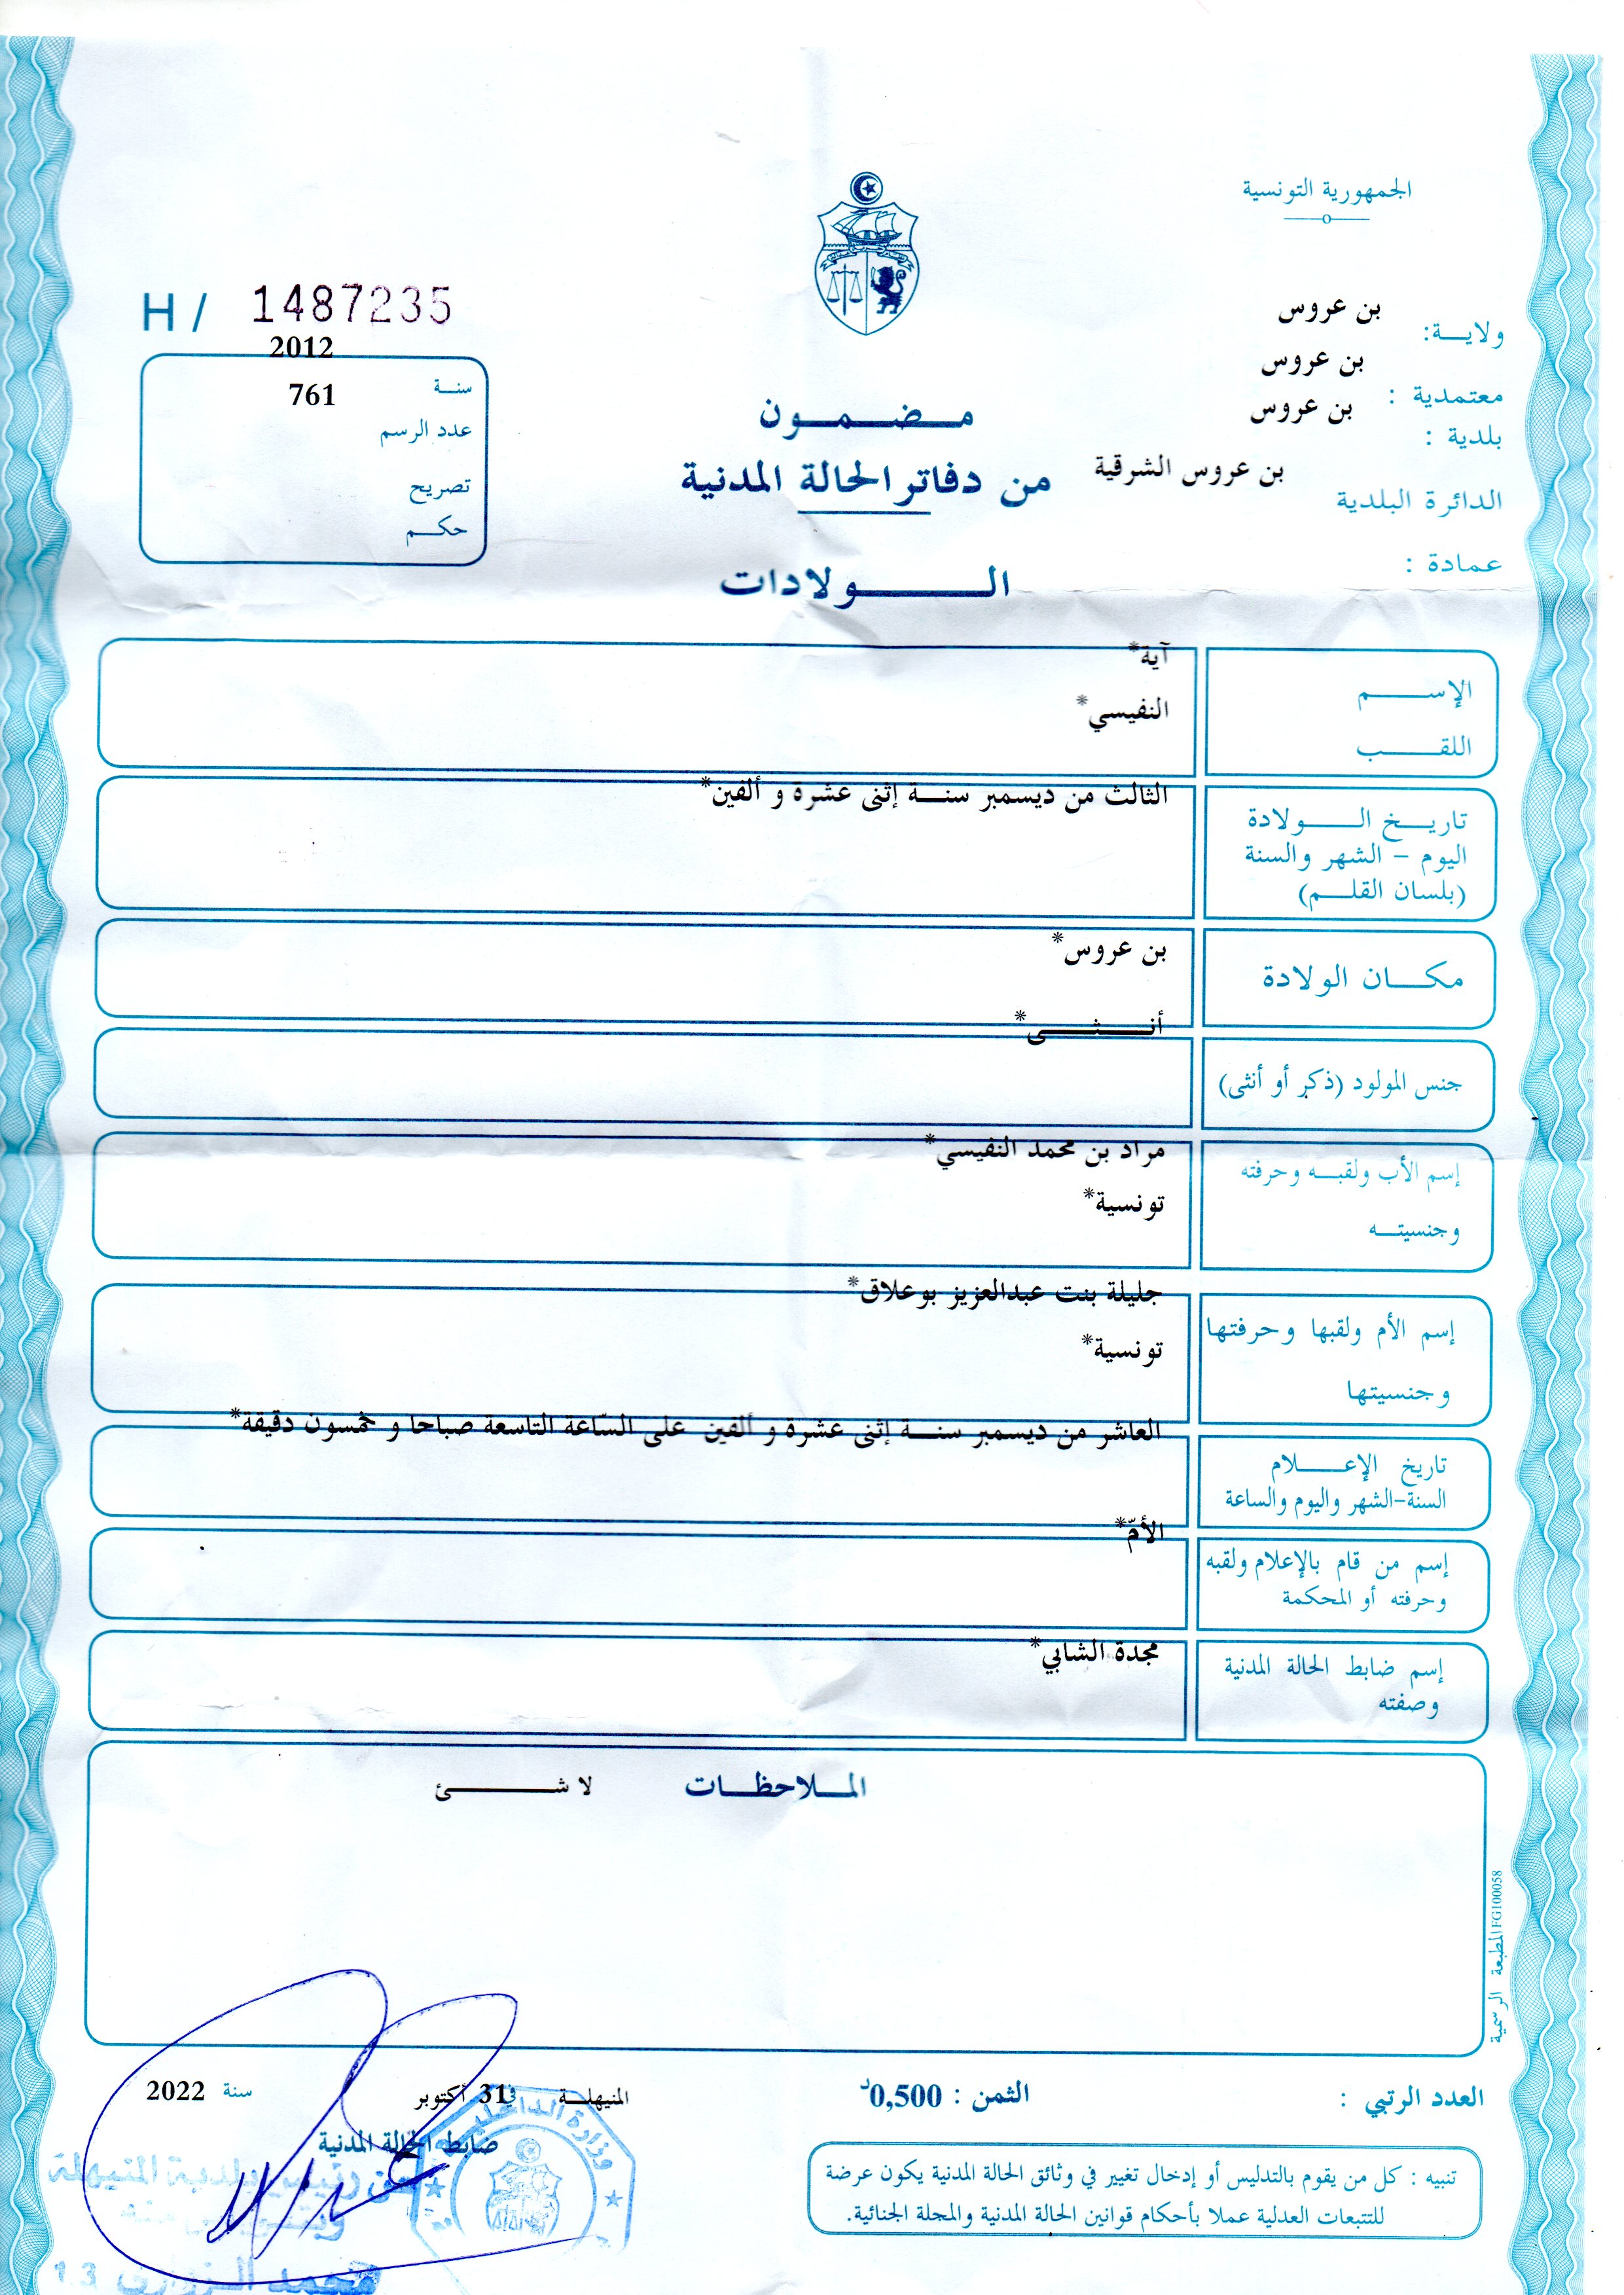 الجمهورية التونسية
H / 1487235
ولايـــة: بن عروس
معتمدية : بن عروس
بلدية : بن عروس
الدائرة البلدية بن عروس الشرقية
عمادة :
سنـة 2012
عدد الرسم 761
تصريح
حكـم
مـضـمـون
من دفاتر الحالة المدنية
الـولادات
الإسـم آية*
اللقـب النفيسي*
تاريـخ الـولادة
اليوم – الشهر والسنة
(بلسان القلـم)
الثالث من ديسمبر سنـة إثنى عشرة و ألفين*
مكـان الولادة بن عروس*
جنس المولود (ذكر أو أنثى) أنـثـى*
إسم الأب ولقبـه وحرفته مراد بن محمد النفيسي*
وجنسيتـه تونسية*
إسم الأم ولقبها وحرفتها جليلة بنت عبدالعزيز بوعلاق*
وجنسيتها تونسية*
تاريخ الإعـلام
السنة-الشهر واليوم والساعة
العاشر من ديسمبر سنـة إثنى عشرة و ألفين على السّاعة التاسعة صباحا و خمسون دقيقة*
إسم من قام بالإعلام ولقبه
وحرفته أو المحكمة
الأمّ*
إسم ضابط الحالة المدنية
وصفته
مجدة الشابي*
المـلاحظـات لا شـئ
المطبعة الرسمية FG100058
العدد الرتبي :
الثمن : 0,500د
المنيهلـة في 31 أكتوبر سنة 2022
ضابط الحالة المدنية
وزارة الداخلية
تنبيه : كل من يقوم بالتدليس أو إدخال تغيير في وثائق الحالة المدنية يكون عرضة
للتتبعات العدلية عملا بأحكام قوانين الحالة المدنية والمجلة الجنائية.